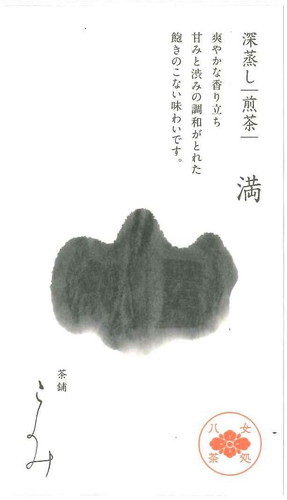 深蒸し｜煎茶｜
満
爽やかな香り立ち
甘みと渋みの調和がとれた
飽きのこない味わいです。
茶舗
このみ
八女
茶処